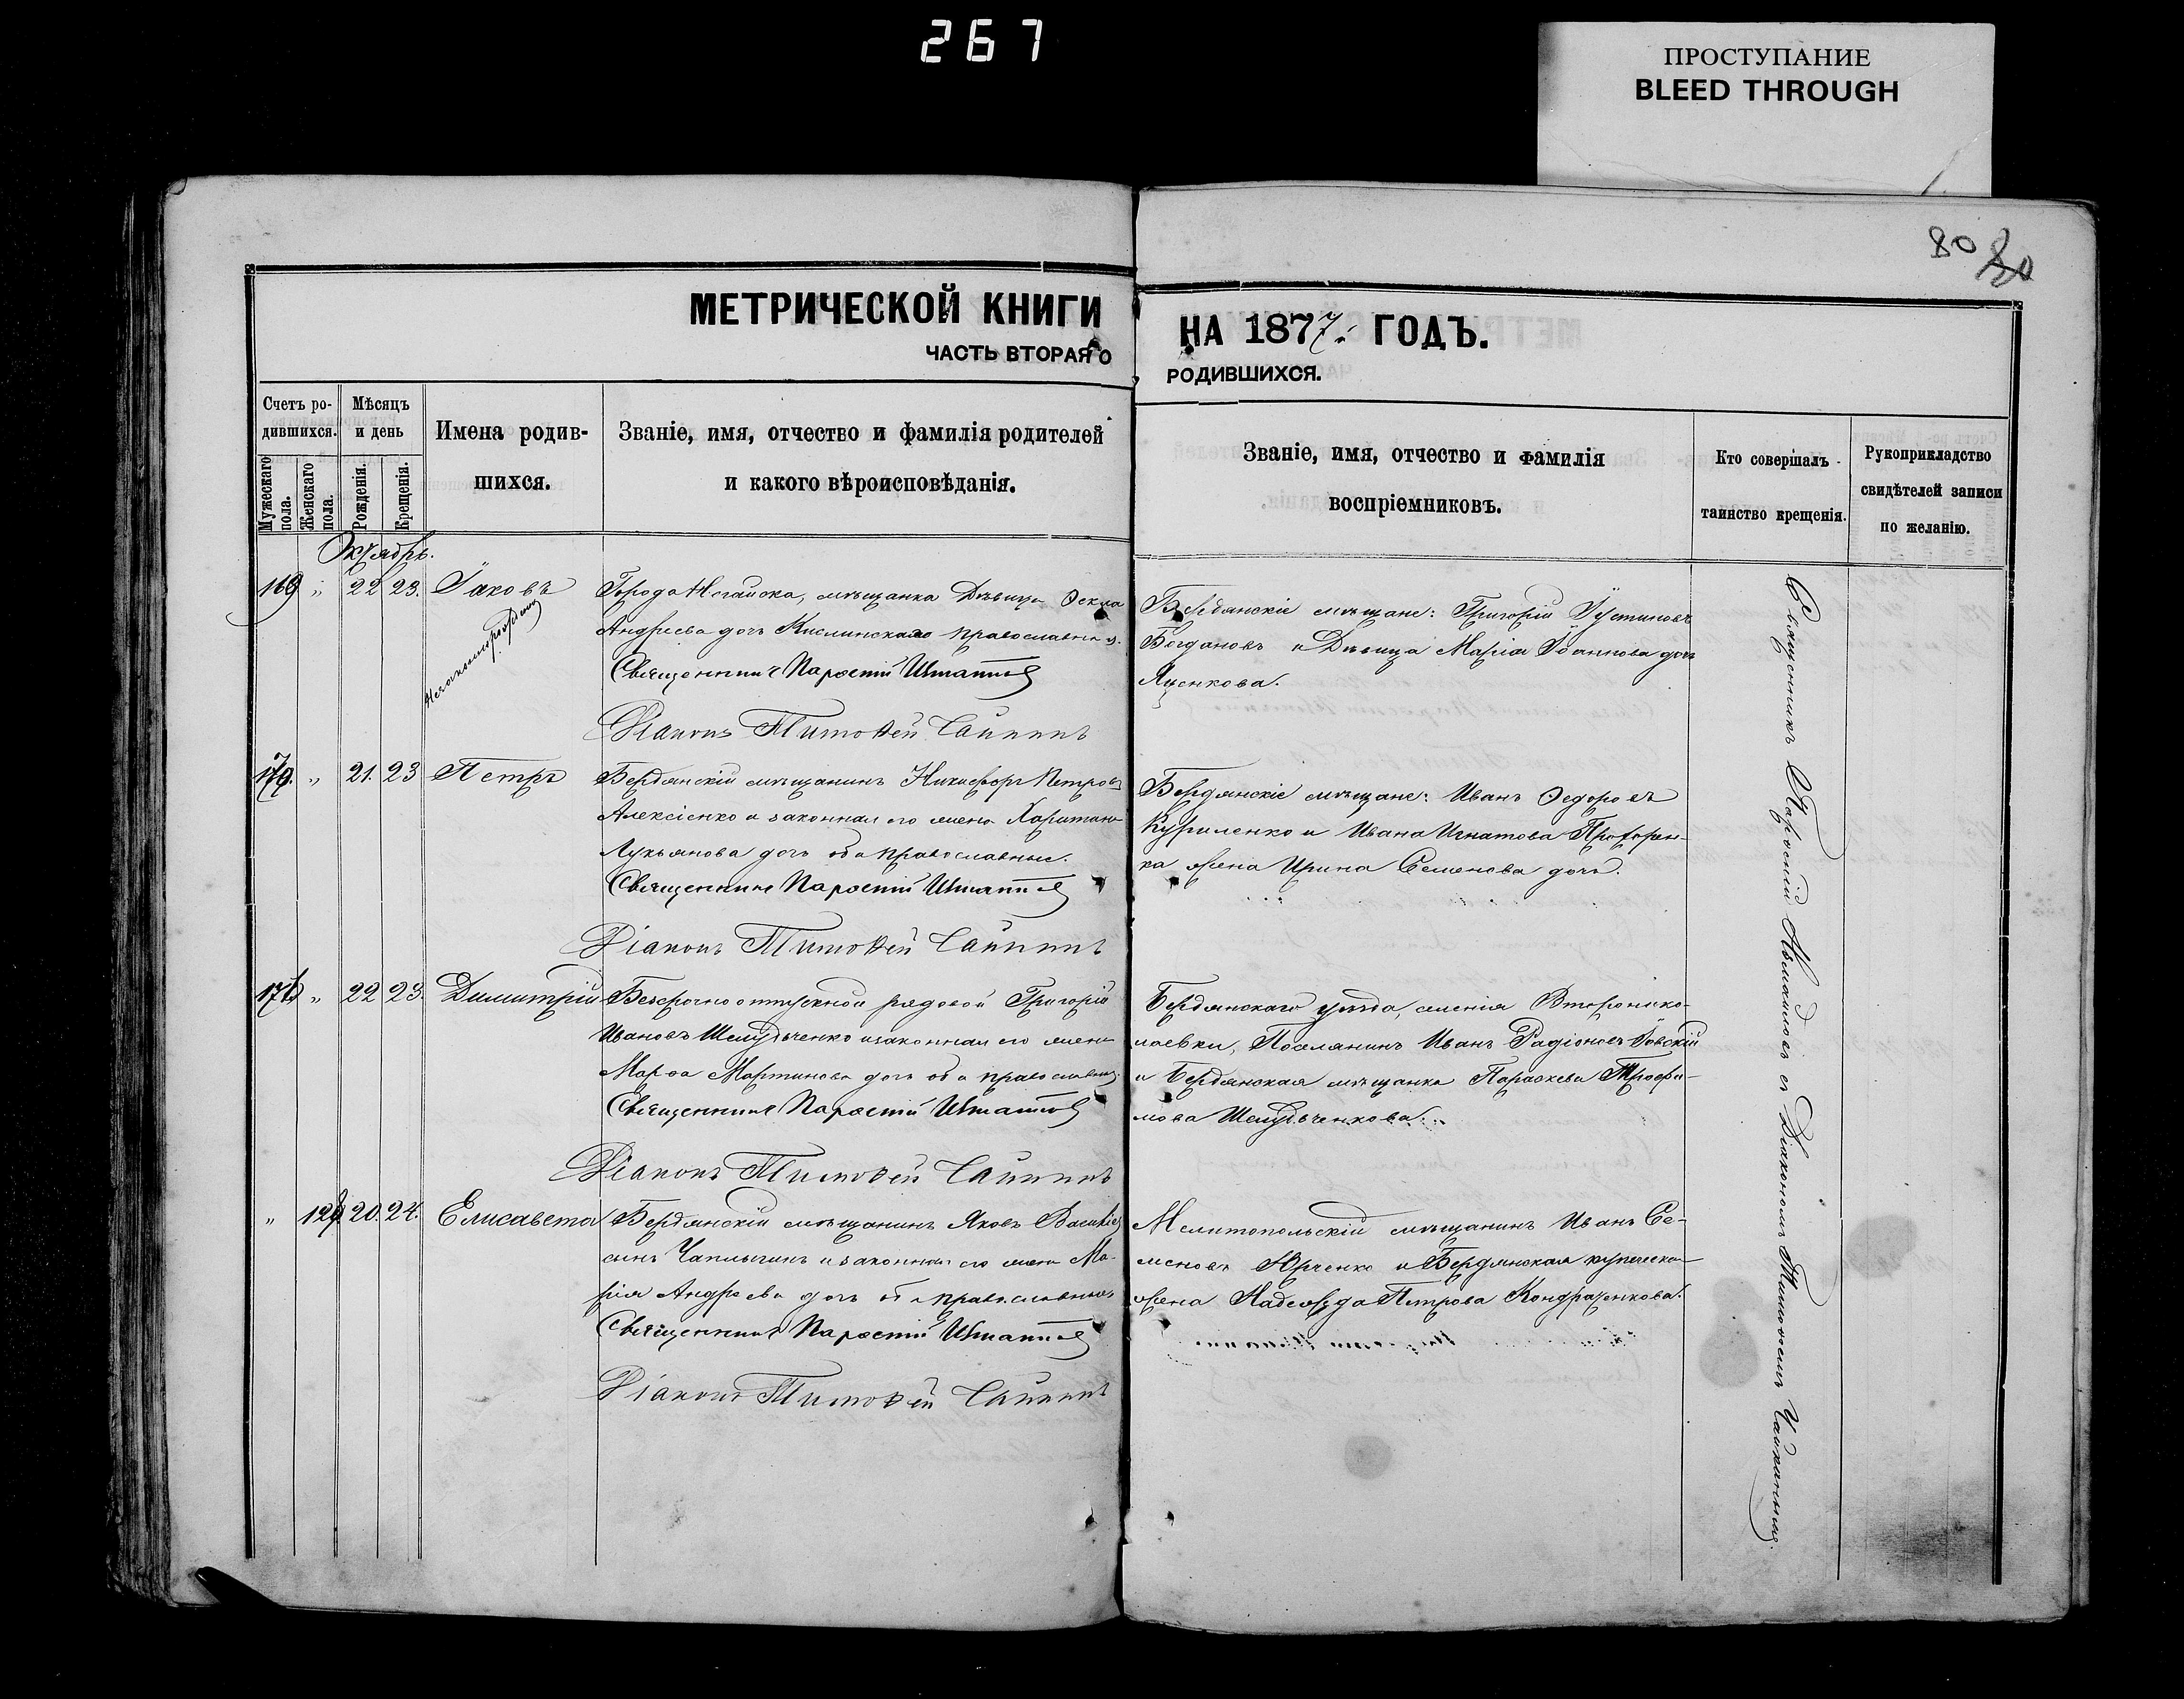 267
ПРОСТУПАНИЕ
BLEED THROUGH
80
МЕТРИЧЕСКОЙ КНИГИ
НА 1877. ГОДЪ.
ЧАСТЬ ВТОРАЯ О
РОДИВШИХСЯ.
Счетъ ро-
дившихся.
Мужескаго пола.
Женскаго пола.
Мѣсяцъ
и день
Рожденія.
Крещенія.
Имена родив-
шихся.
Званіе, имя, отчество и фамилія родителей
и какого вѣроисповѣданія.
Званіе, имя, отчество и фамилія
воспріемниковъ.
Кто совершалъ
таинство крещенія.
Рукоприкладство
свидѣтелей записи
по желанію.
Октябрь.
169 " 22 23. Іаковъ
незаконнорожденный
Города Ногайска, мѣщанка Дѣвица Ѳекла
Андреева дочь православная.
Священникъ
Діаконъ Тимоѳей
Бердянскіе мѣщане: Григорій Іустиновъ
Богдановъ и Дѣвица Марія Іоаннова дочь
Яценкова.
170. " 21. 23 Петръ
Бердянскій мѣщанинъ Никифоръ Петровъ
Алексіенко и законная его жена Харитина
Лукьянова дочь оба православные.
Священникъ
Діаконъ Тимоѳей
Бердянскіе мѣщане: Иванъ Ѳедоровъ
Куриленко и Ивана Игнатова Прохорен-
ка жена Ирина Семенова дочь.
171 " 22 23. Димитрій
Безсрочноотпускной рядовой Григорій
Ивановъ и законная его жена
Марѳа Мартинова дочь оба православные.
Священникъ
Діаконъ Тимоѳей
Бердянскаго уѣзда, селенія Второнико-
лаевки, Поселянинъ Иванъ Радіоновъ
и Бердянская мѣщанка Параскева Трофи-
мова
" 129 20. 24. Елисавета
Бердянскій мѣщанинъ Яковъ
сынъ Чаплыгинъ и законная его жена Ма-
рія Андреева дочь оба православные
Священникъ
Діаконъ Тимоѳей
Мелитопольскій мѣщанинъ Иванъ Се-
меновъ Юрченко и Бердянская купеческая
жена Надежда Петрова Кондраченкова.
Священникъ съ Діакономъ Тимоѳеемъ